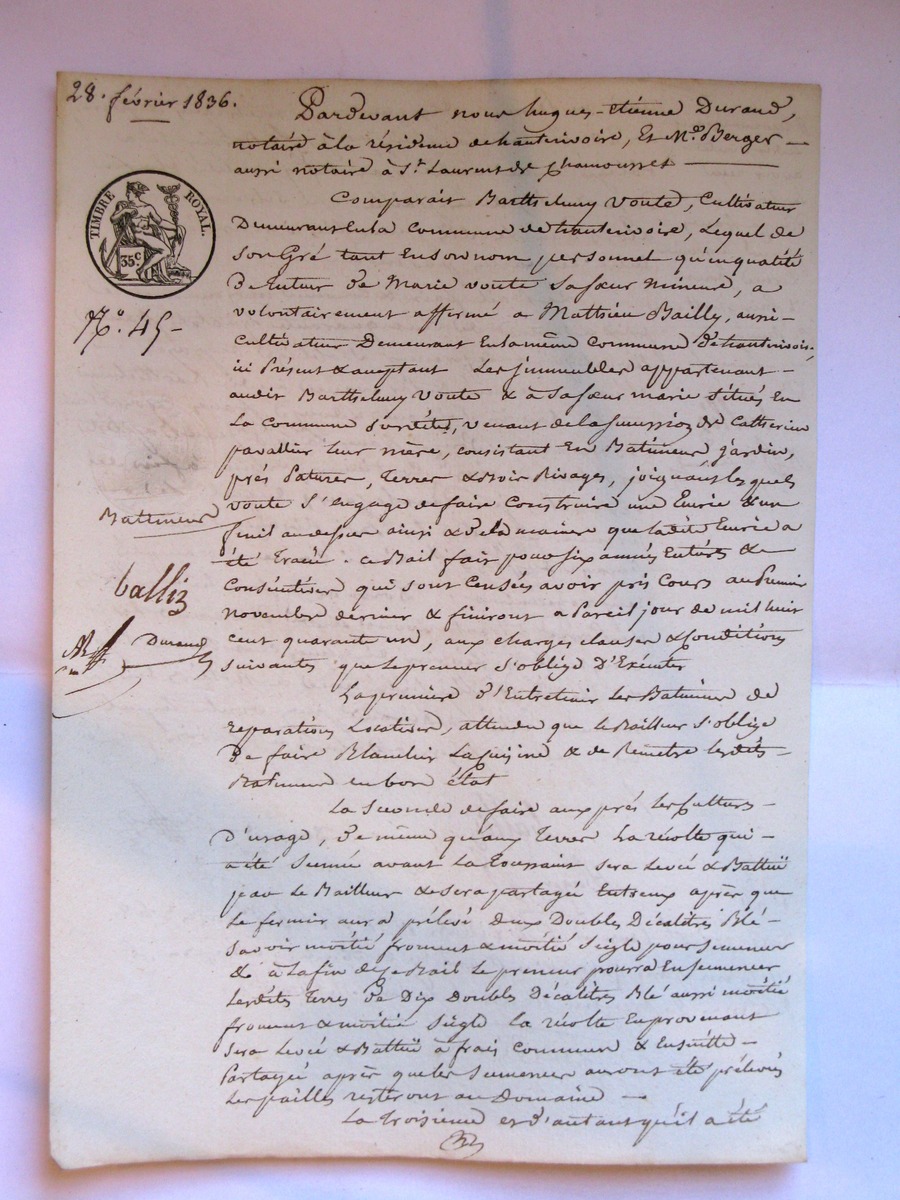 28. février 1836.
Pardevant nous hugues-étienne Durand,
notaire à la résidence de hauterivoire, Et Me. Berger
aussi notaire à St. Laurent de Chamousset
TIMBRE ROYAL.
35c.
No. 45
Comparait Barthelemy Voute, Cultivateur
Demeurant En la Commune de hauterivoire, Lequel de
son Gré tant En son nom personnel qu'en qualité
De tuteur De Marie voute Sa sœur Mineure, a
volontairement affermé a Mathieu Bailly, aussi
Cultivateur Demeurant En la même Commune D'hauterivoire,
ici Présent & acceptant Les jmmeubles appartenant
audit Barthelemy Voute & à Sa sœur marie Situés En
La Commune susdite, venant de la succession de Catherine
pavallier leur mère, consistant En Batimens jardin,
prés Patures, Terres & Bois Rivages, joignant lesquels
voute S'engage de faire Construire une Ecurie & un
fenil au dessus ainsi & De la maniere que ladite Ecurie a
été Tracée. Ce Bail fait pour six années Entieres &
Consécutives qui sont Censées avoir pris Cours au Premier
novembre dernier & finiront a Pareil jour de mil huit
cent quarante un, aux charges clauses & Conditions
suivantes que Le preneur s'oblige D'Exécuter
Batimens
bailly
Durand
La premiere D'Entretenir Les Batimens de
reparations Locatives, attendu que le Bailleur S'oblige
De faire Blanchir La Cuisine & de Remettre lesdits
Batimens en bon état
La Seconde de faire aux prés les Cultures
D'usage, De même qu'aux Terres La récolte qui
a été Semée avant La Toussaint sera Levée & Battue
par Le Bailleur & sera partagée Entr'eux après que
Le fermier aura prélevé Deux Doubles Décalitres Blé
Savoir moitié froment & moitié Seigle pour Semences
& à La fin de ce Bail Le preneur pourra Ensemencer
Lesdites Terres De Dix Doubles Décalitres Blé aussi moitié
froment & moitié Seigle La récolte En provenant
Sera Levée & Battue à frais Communs & Ensuite
Partagée après que les Semences auront été prélevées
Les pailles resteront au Domaine
La Troisieme est d'autant qu'il a été